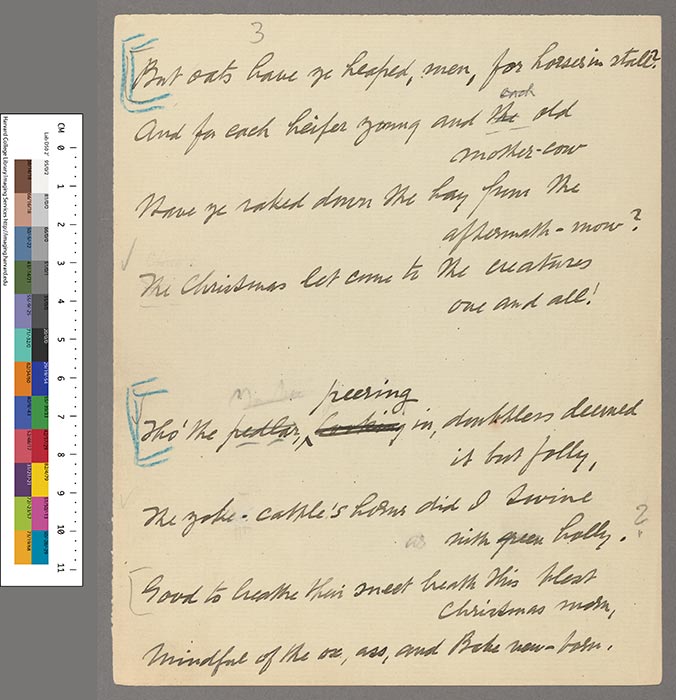 3
But oats have ye heaped, men, for horses in stall?
each
And for each heifer young and the old
mother-cow
Have ye raked down the hay from the
aftermath-mow?
The Christmas let come to the creatures
one and all!
peering
Tho' the pedlar, looking in, doubtless deemed
it but folly,
The yoke-cattle's horns did I twine
with green holly. ?
Good to breathe their sweet breath this blest
Christmas morn,
Mindful of the ox, ass, and Babe new-born.
CM 0 1 2 3 4 5 6 7 8 9 10 11
Harvard College Library Imaging Services http://imaging.harvard.edu